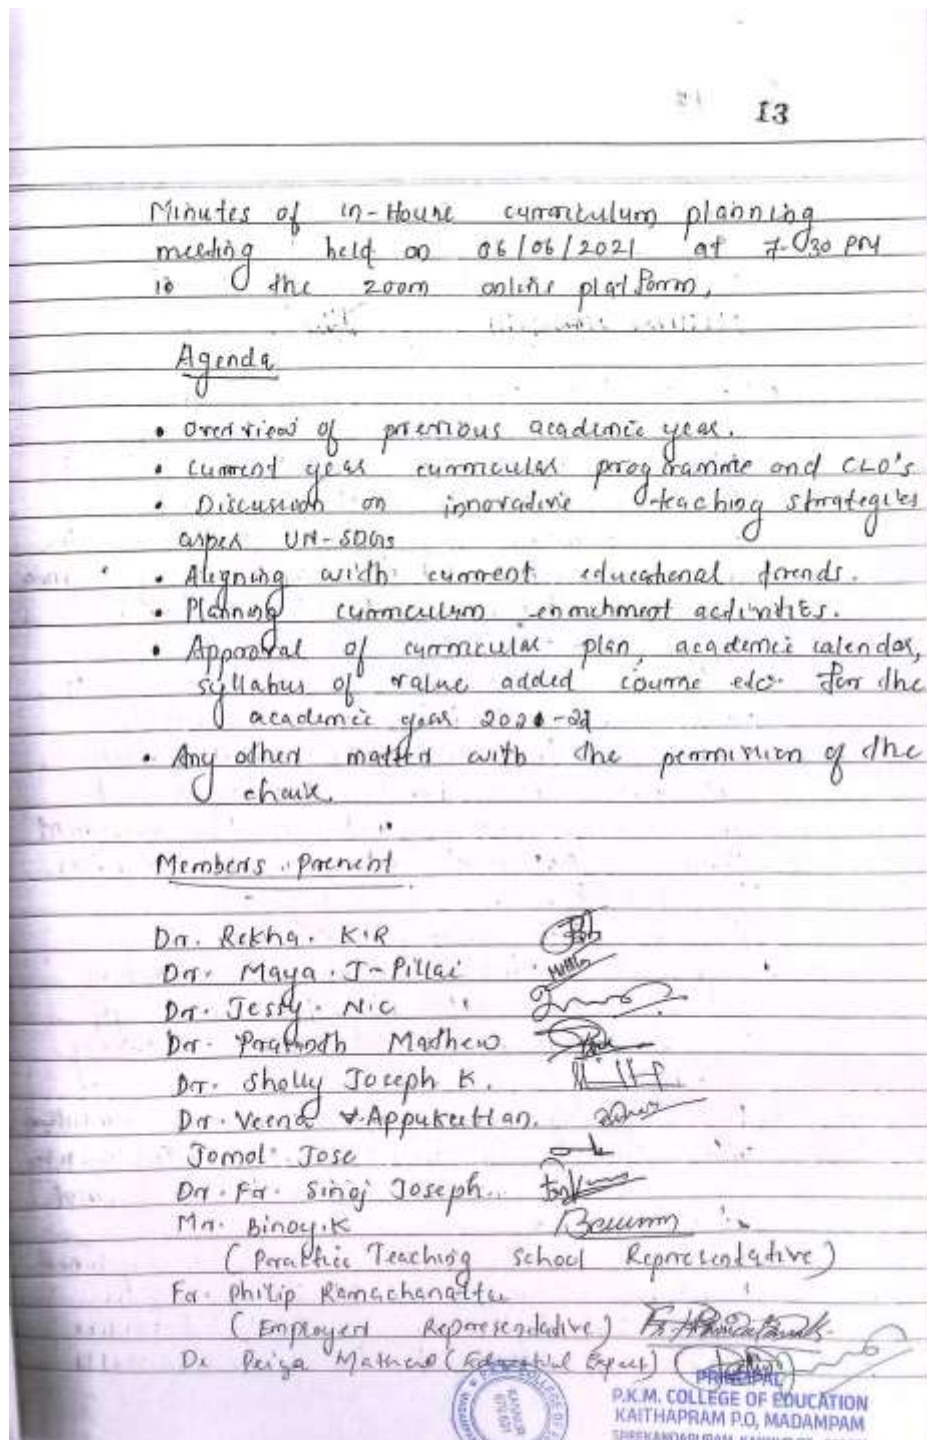 13
Minutes of in-House curriculum planning
meeting held on 06/06/2021 at 7.30 PM
in the zoom online platform,
Agenda
• Overview of previous academic year.
• Current year curricular programme and CLO's
• Discussion on innovative teaching strategies
as per UN-SDGs
• Aligning with current educational trends.
• Planning curriculum enrichment activities.
• Approval of curricular plan, academic calendar,
syllabus of value added course etc. for the
academic year 2021-22
• Any other matter with the permission of the
chair.
Members Present
Dr. Rekha. K.R
Dr. Maya. J-Pillai
Dr. Jessy. N.C
Dr. Pramodh Mathew
Dr. Shelly Joseph K.
Dr. Veena V. Appukuttan.
Jomol Jose
Dr. Fr. Sinoj Joseph.
Mr. Binoy.K
(Practice Teaching School Representative)
Fr. Philip Ramachanattu
(Employer Representative)
Dr Priya Mathew (Educational Expert)
PRINCIPAL
P.K.M. COLLEGE OF EDUCATION
KAITHAPRAM P.O, MADAMPAM